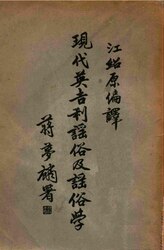 江紹原編譯
現代英吉利謠俗及謠俗学
蔣夢麟署